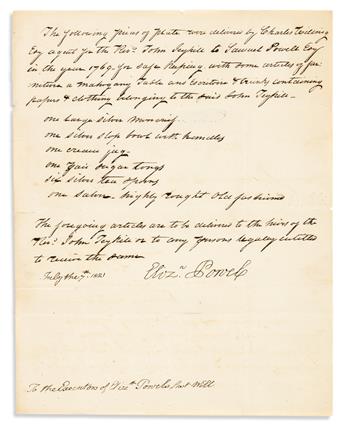 The following pieces of plate were delivered by Charles Willing
Esq agent for the Revd. John Peykill to Samuel Powell Esq
in the year 1769. for safe keeping with some articles of fur
niture a mahogany Table and Escretore & trunks containing
papers & clothing belonging to the said John Peykill
one Large silver
one silver slop bowl with handles
one cream jug
one pair sugar tongs
six silver tea spoons
one salver highly rought old fashioned
The foregoing articles are to be delivered to the heirs of the
Revd. John Peykill or to any persons legally entitled
to receive the same
July the 7th. 1821
Eliza. Powel
To the Executors of Eliza. Powels last Will